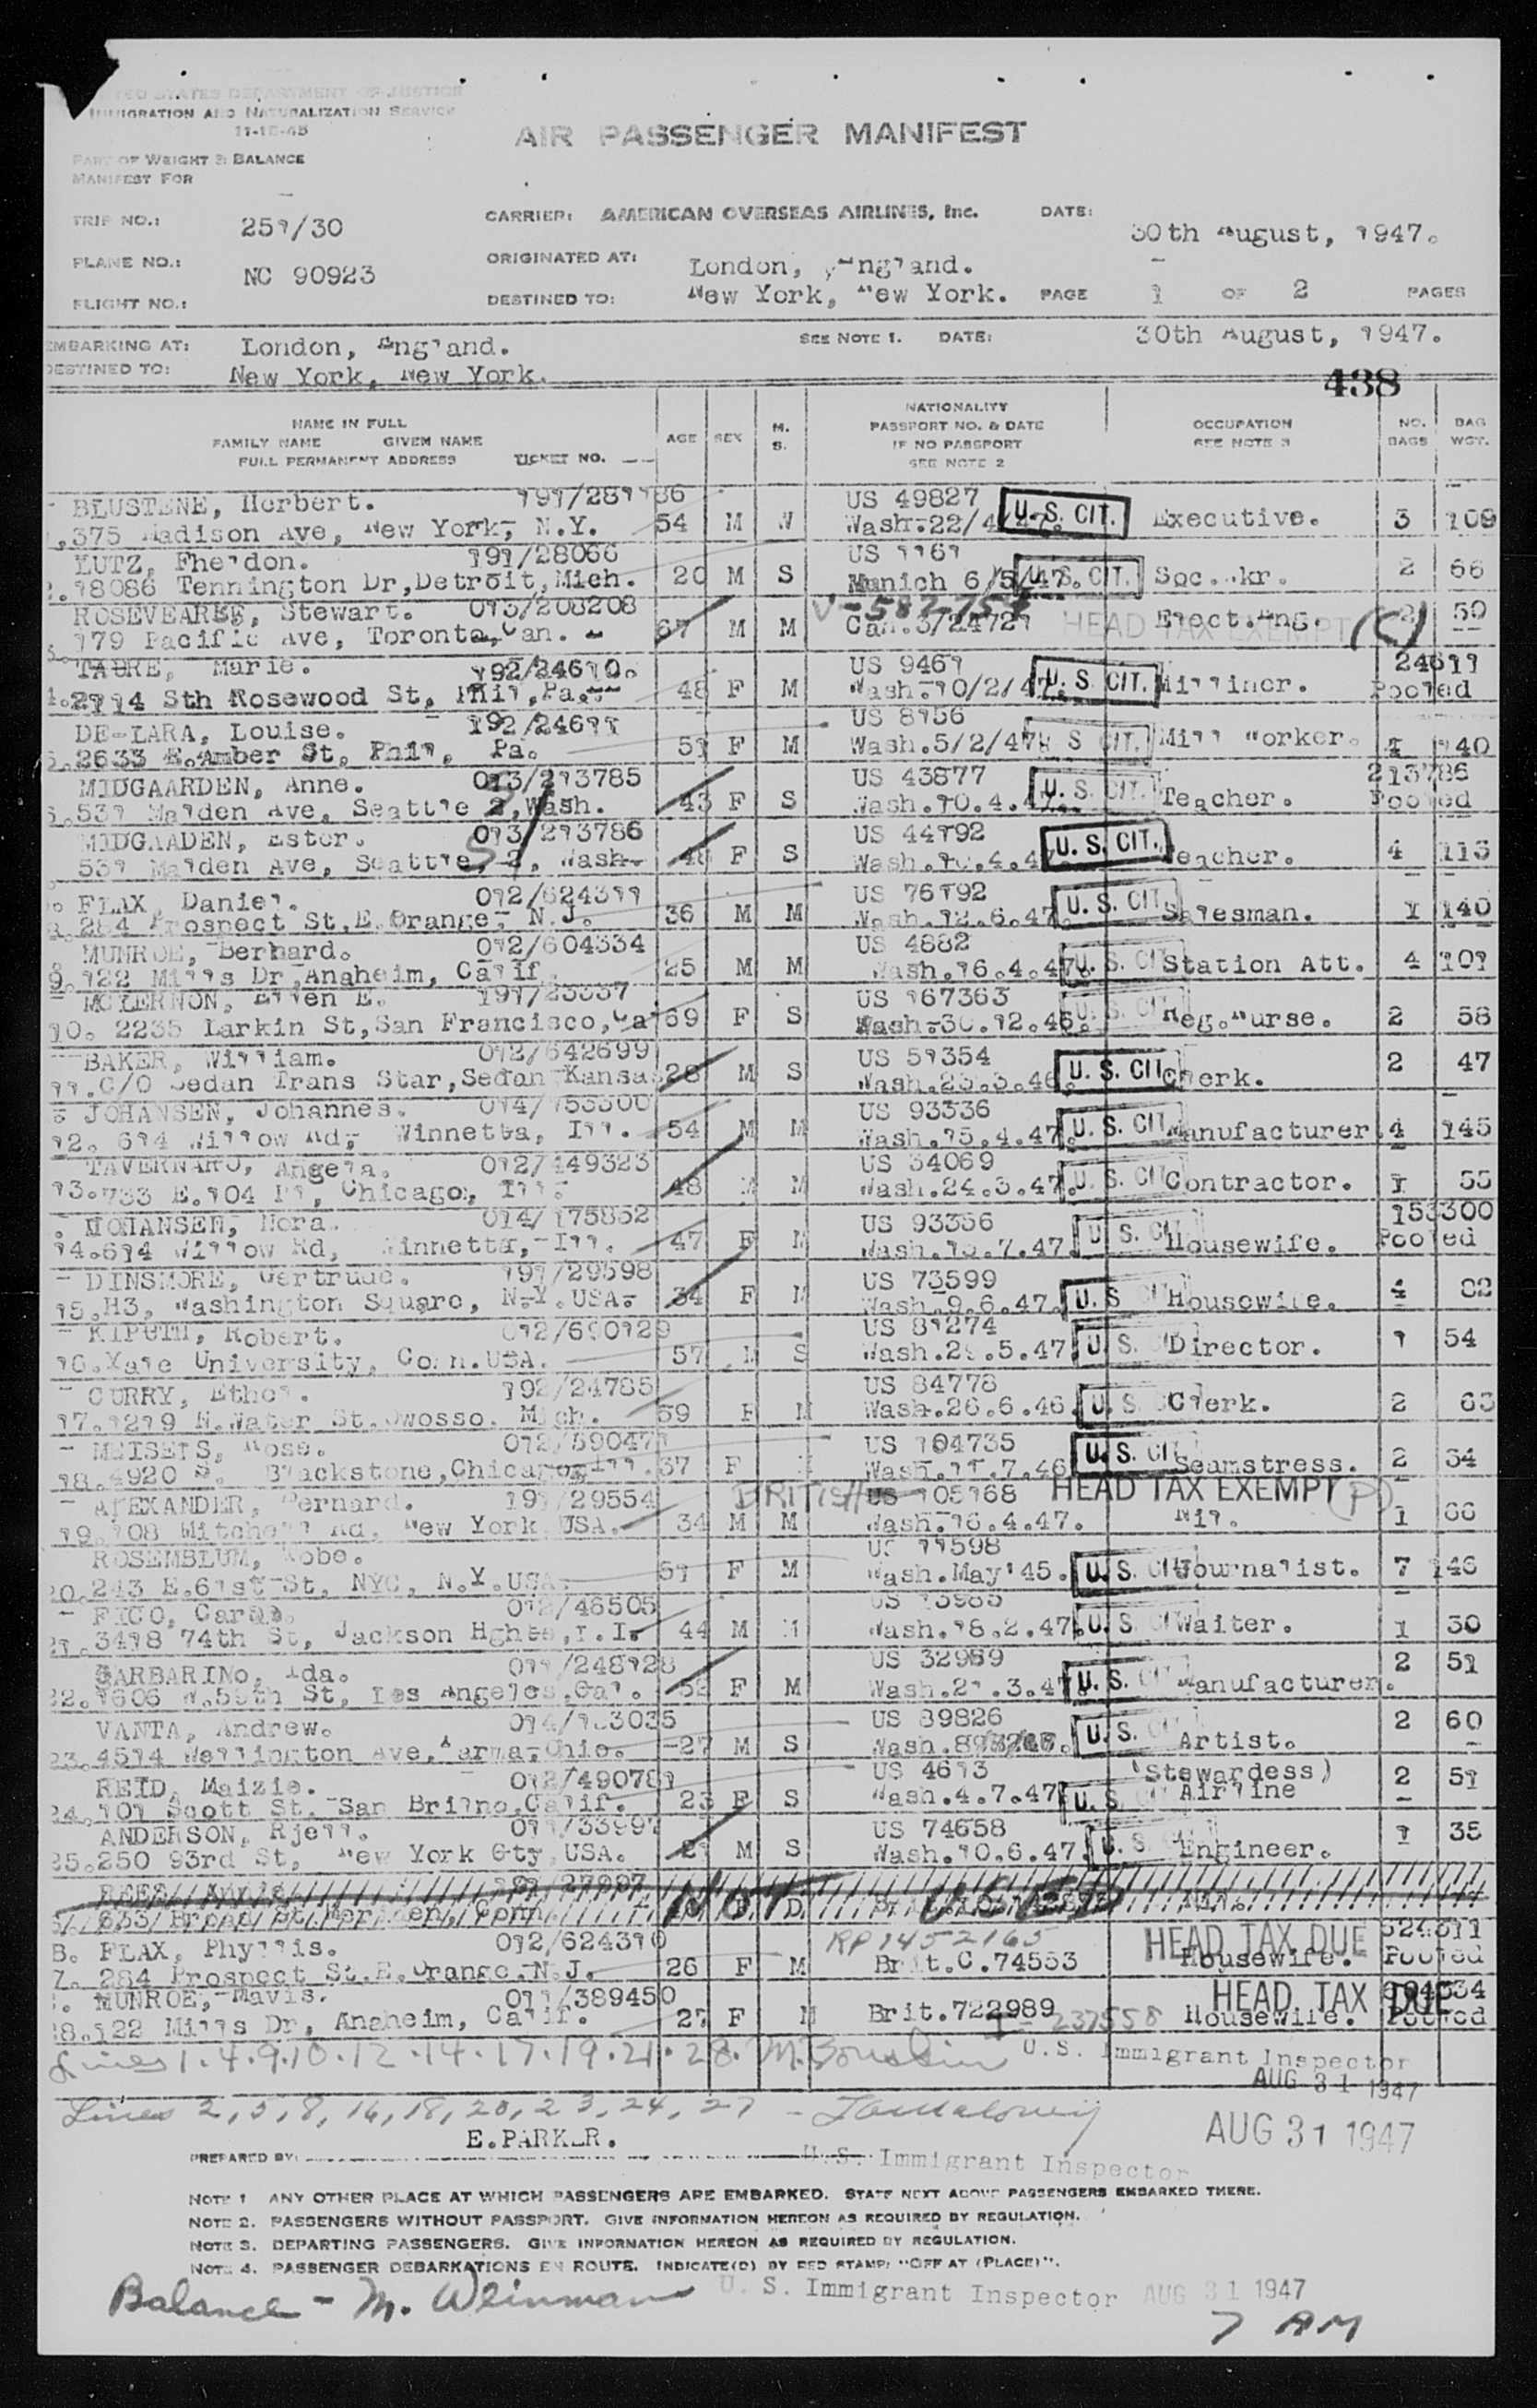 UNITED STATES DEPARTMENT OF JUSTICE
IMMIGRATION AND NATURALIZATION SERVICE
11-15-45
AIR PASSENGER MANIFEST
PART OF WEIGHT & BALANCE
MANIFEST FOR
TRIP NO.: 251/30 CARRIER: AMERICAN OVERSEAS AIRLINES, Inc. DATE: 30th August, 1947.
PLANE NO.: NC 90923 ORIGINATED AT: London, England.
FLIGHT NO.: DESTINED TO: New York, New York. PAGE 1 OF 2 PAGES
EMBARKING AT: London, England. SEE NOTE 1. DATE: 30th August, 1947.
DESTINED TO: New York, New York.
438
NAME IN FULL
FAMILY NAME GIVEN NAME
FULL PERMANENT ADDRESS TICKET NO.
AGE SEX M. S.
NATIONALITY
PASSPORT NO. & DATE
IF NO PASSPORT
SEE NOTE 2
OCCUPATION
SEE NOTE 3
NO. BAGS BAG WGT.
BLUSTENE, Herbert. 191/281186 US 49827
1.375 Madison Ave, New York, N.Y. 54 M W Wash.22/4/47. U.S. CIT. Executive. 3 109
LUTZ, Sheldon. 191/28066 US 1161
2.18086 Tennington Dr, Detroit, Mich. 20 M S Munich 6/5/47. U.S. CIT. Soc. wkr. 2 66
ROSEVEARE, Stewart. 013/208208 V-582754
179 Pacific Ave, Toronto, Can. 67 M M Can.3/24721 HEAD TAX EXEMPT (C) Elect.Eng. 2 50
Marie. 192/24610. US 9461 24611
4.2114 Sth Rosewood St, Phil, Pa. 48 F M Wash.10/2/47. U.S. CIT. Milliner. Pooled
DE-LARA, Louise. 192/24611 US 8156
5.2633 E.Amber St, Phil, Pa. 51 F M Wash.5/2/47. U.S. CIT. Mill Worker. 4 140
MIDGAARDEN, Anne. 013/213785 US 43877 213786
6.531 Malden Ave, Seattle 2, Wash. 43 F S Wash.10.4.47. U.S. CIT. Teacher. Pooled
MIDGAADEN, Ester. 013/213786 US 44192
531 Malden Ave, Seattle, 2, Wash. 48 F S Wash.10.4.47. U.S. CIT. Teacher. 4 113
FLAX, Daniel. 012/624311 US 76192
8.284 Prospect St, E.Orange, N.J. 36 M M Wash.12.6.47. U.S. CIT. Salesman. 1 140
MUNROE, Bernard. 012/604334 US 4882
9.122 Mills Dr, Anaheim, Calif. 25 M M Wash.16.4.47. U.S. CIT. Station Att. 4 101
Ellen E. 191/23337 US 167363
10. 2235 Larkin St, San Francisco, Cal 69 F S Wash.30.12.46. U.S. CIT. Reg.Nurse. 2 58
BAKER, William. 012/642699 US 51354
11.C/O Sedan Trans Star, Sedan Kansas 28 M S Wash.23.3.46. U.S. CIT. Clerk. 2 47
JOHANSEN, Johannes. 014/153300 US 93336
12. 614 Willow Rd, Winnetta, Ill. 54 M M Wash.15.4.47. U.S. CIT. Manufacturer. 4 145
TAVERNARO, Angela. 012/449323 US 34069
13.733 E.104 Pl, Chicago, Ill. 48 M Wash.24.3.47. U.S. CIT. Contractor. 1 55
Nora. 014/175852 US 93356 153300
14.614 Willow Rd, Winnetta, Ill. 47 F M Wash.15.7.47. U.S. CIT. Housewife. Pooled
DINSMORE, Gertrude. 191/29598 US 73599
15.H3, Washington Square, N.Y. USA. 34 F M Wash.9.6.47. U.S. CIT. Housewife. 4 82
KIPUTH, Robert. 012/690129 US 81274
16.Yale University, Conn.USA. 57 M S Wash.29.5.47. U.S. CIT. Director. 1 54
CURRY, Ethel. 192/24785 US 84778
17.1219 N.Water St.Owosso. Mich. 59 F M Wash.26.6.46. U.S. CIT. Clerk. 2 63
MEISELS, Rose. 012/590471 US 104735
18.4920 S. Blackstone, Chicago, Ill. 37 F Wash.11.7.46. U.S. CIT. Seamstress. 2 34
ALEXANDER, Bernard. 191/29554 BRITISH US 105168 HEAD TAX EXEMPT (P)
19.108 Mitchell Rd, New York USA. 34 M M Wash.16.4.47. Nil. 1 66
ROSEMBLUM, Robe. US 11598
20.243 E.61st St, NYC, N.Y.USA. 61 F M Wash.May'45. U.S. CIT. Journalist. 7 146
FICO, Carmo. 012/46505 US 13985
21.3418 74th St, Jackson Hghts, L.I. 44 M M Wash.18.2.47. U.S. CIT. Waiter. 1 30
GARBARINo, Ida. 011/248128 US 32989
22.1606 W.55th St, Los Angeles, Cal. 52 F M Wash.21.3.47. U.S. CIT. Manufacturer. 2 51
VANTA, Andrew. 014/153035 US 89826
23.4514 Wellington Ave, Parma, Ohio. 27 M S Wash. U.S. CIT. Artist. 2 60
REID, Maizie. 012/490781 US 4613 (Stewardess)
24.101 Scott St. San Brilno, Calif. 23 F S Wash.4.7.47. U.S. CIT. Airline 2 51
ANDERSON, Kjell. 011/33997 US 74658
25.250 93rd St, New York Cty, USA. 21 M S Wash.10.6.47. U.S. CIT. Engineer. 1 35
REES, Annie 27997 NOT USED
633 Broad St, Meriden, Conn. Nil. 44
FLAX, Phyllis. 012/624310 RP1452165 HEAD TAX DUE 624311
7. 284 Prospect St.E.Orange.N.J. 26 F M Brit.C.74553 Housewife. Pooled
MUNROE, Mavis. 011/389450 HEAD TAX DUE 604334
28.122 Mills Dr, Anaheim, Calif. 27 F M Brit.722989 237558 Housewife. Pooled
Lines 1.4.9.10.12.14.17.19.21.28. U.S. Immigrant Inspector
AUG 31 1947
Lines 2,5,8,16,18,20,23,24,27 -
AUG 31 1947
PREPARED BY: E.PARKER. U.S. Immigrant Inspector
NOTE 1 ANY OTHER PLACE AT WHICH PASSENGERS ARE EMBARKED. STATE NEXT ABOVE PASSENGERS EMBARKED THERE.
NOTE 2. PASSENGERS WITHOUT PASSPORT. GIVE INFORMATION HEREON AS REQUIRED BY REGULATION.
NOTE 3. DEPARTING PASSENGERS. GIVE INFORMATION HEREON AS REQUIRED BY REGULATION.
NOTE 4. PASSENGER DEBARKATIONS EN ROUTE. INDICATE(D) BY RED STAMP: "OFF AT (PLACE)".
Balance - M. Weinman U. S. Immigrant Inspector AUG 31 1947
7 AM